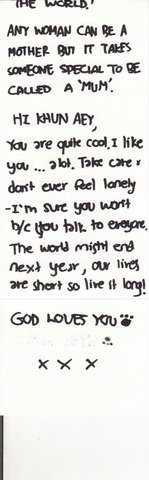 THE WORLD.'
ANY WOMAN CAN BE A
MOTHER BUT IT TAKES
SOMEONE SPECIAL TO BE
CALLED A 'MUM'.
HI KHUN AEY,
You are quite cool. I like
you ... alot. Take care &
don't ever feel lonely
-I'm sure you won't
b/c you talk to everyone.
The world might end
next year, our lives
are short so live it long!
GOD LOVES YOU
x x x